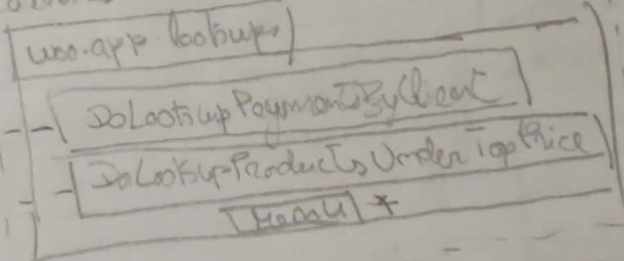 uoo.app lookups
DoLookupPaymentsByClient
DoLookupProductsUnderTopPrice
*